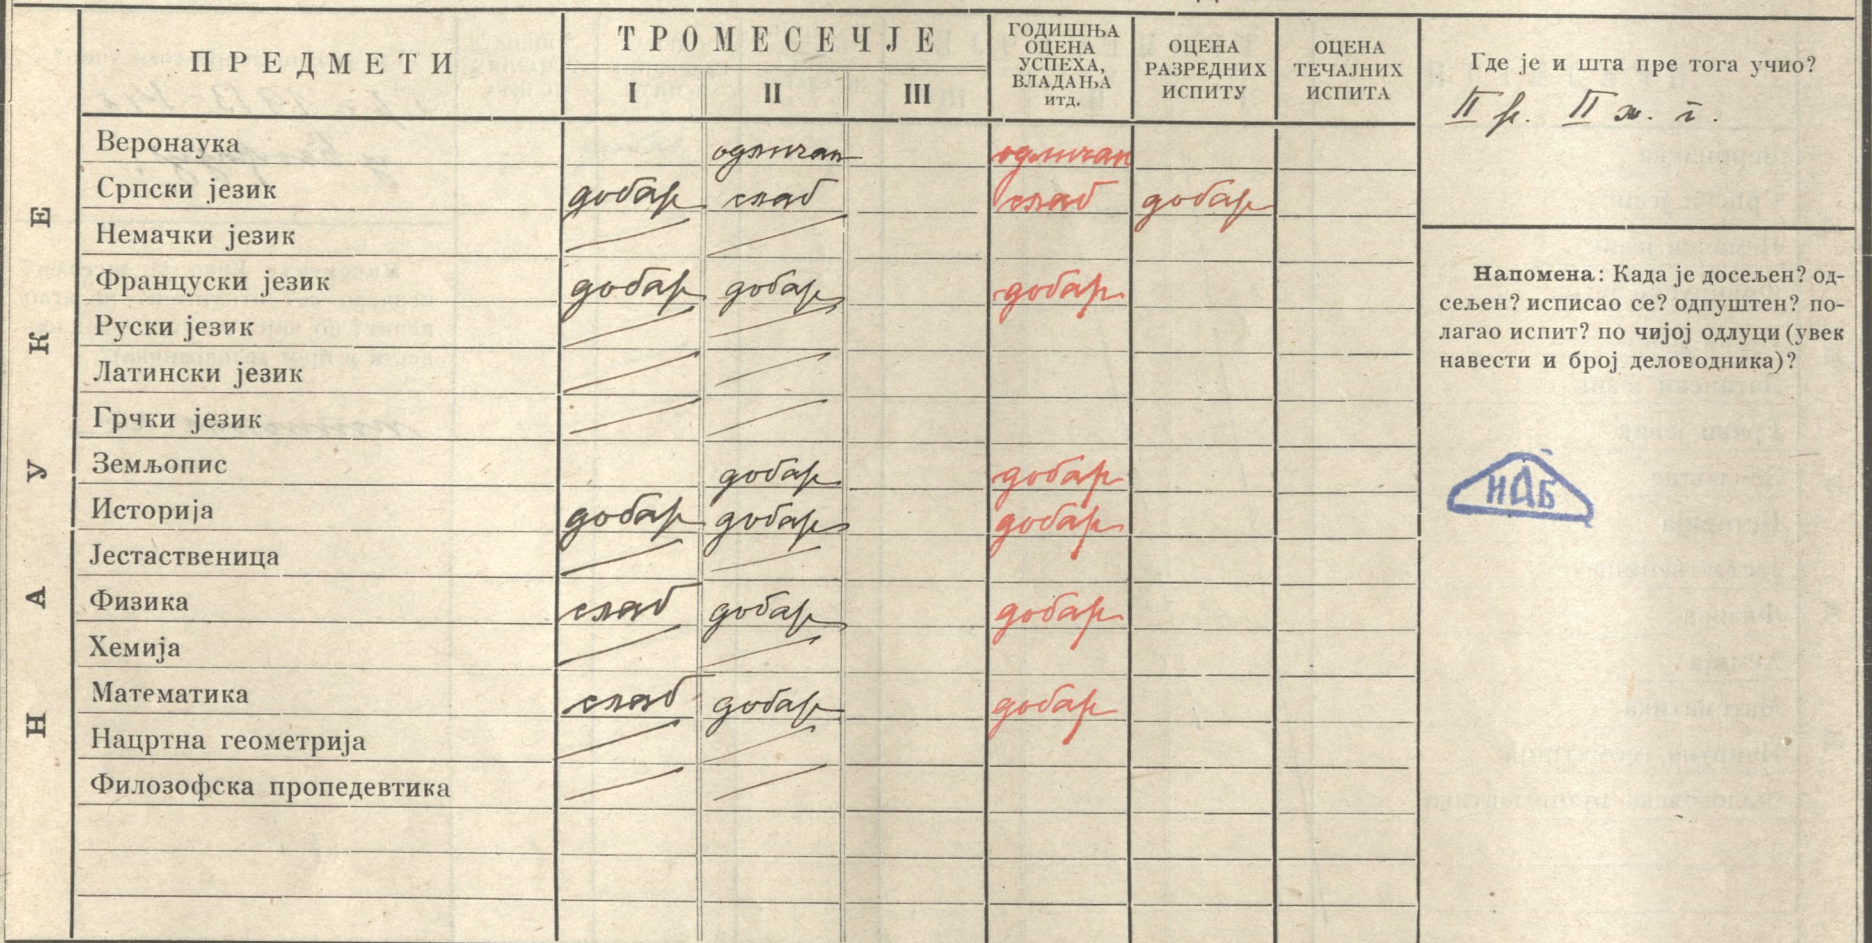 ПРЕДМЕТИ
ТРОМЕСЕЧЈЕ
I II III
ГОДИШЊА ОЦЕНА УСПЕХА, ВЛАДАЊА итд.
ОЦЕНА РАЗРЕДНИХ ИСПИТУ
ОЦЕНА ТЕЧАЈНИХ ИСПИТА
Где је и шта пре тога учио?
II р. II м. г.
НАУКЕ
Веронаука одличан одличан
Српски језик добар слаб слаб добар
Немачки језик
Француски језик добар добар добар
Руски језик
Латински језик
Грчки језик
Земљопис добар добар
Историја добар добар добар
Јестаственица
Физика слаб добар добар
Хемија
Математика слаб добар добар
Нацртна геометрија
Филозофска пропедевтика
Напомена: Када је досељен? од-
сељен? исписао се? одпуштен? по-
лагао испит? по чијој одлуци (увек
навести и број деловодника)?
ИАБ